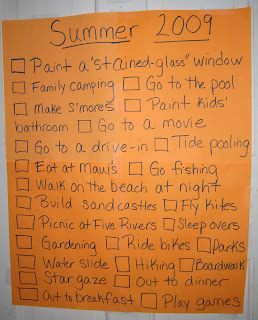 Summer 2009
Paint a "stained-glass" window
Family camping Go to the pool
Make S'mores Paint kids'
bathroom Go to a movie
Go to a drive-in Tide pooling
Eat at Maui's Go fishing
Walk on the beach at night
Build sandcastles Fly Kites
Picnic at Five Rivers Sleepovers
Gardening Ride bikes Parks
Water slide Hiking Boardwalk
Star gaze Out to dinner
Out to breakfast Play games